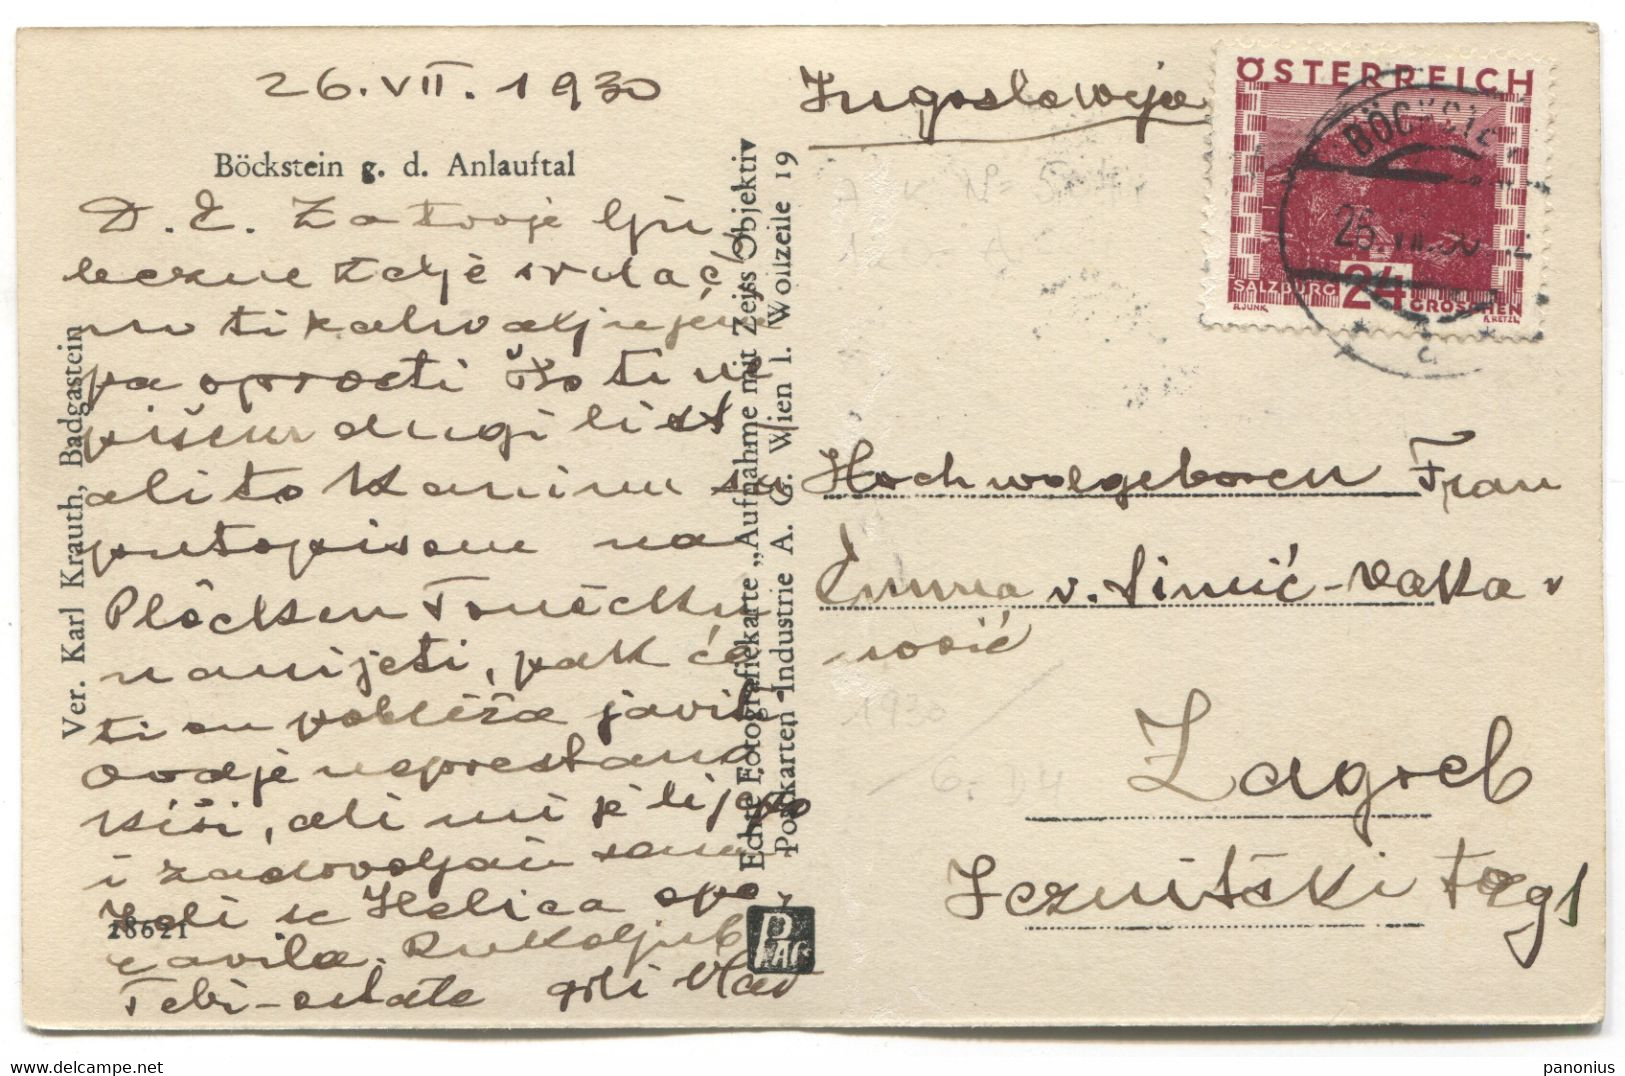 26.VII.1930
Böckstein g. d. Anlauftal
D. E. Za tvoje lju
bezne želje srdač
no ti zahvaljujem
pa oprosti što ti ne
pišem drugi list
ali to kanim sa
putopisom na
Plöcken
nanijeti, pak ću
ti en pobliže javiti
Ovdje neprestano
kiši, ali mi je lijepo
i zadovoljan sam
Jeli se Helica opo
ravila. Rukoljub
Tebi - ostale grli Vlad
18621
Ver. Karl Krauth, Badgastein
Echte Fotografiekarte „Aufnahme mit Zeiss Objektiv
Postkarten-Industrie A. G. Wien I. Wollzeile 19
PAG
Jugoslawija
ÖSTERREICH
SALZBURG 24 GROSCHEN
R. JUNK A. RETZL
BÖCKSTEIN
26.VII.30
Hochwolgeboren Frau
Emma v. Simić-Vaka
nović
Zagreb
Jezuitski trg 1
1930
6. D4
panonius